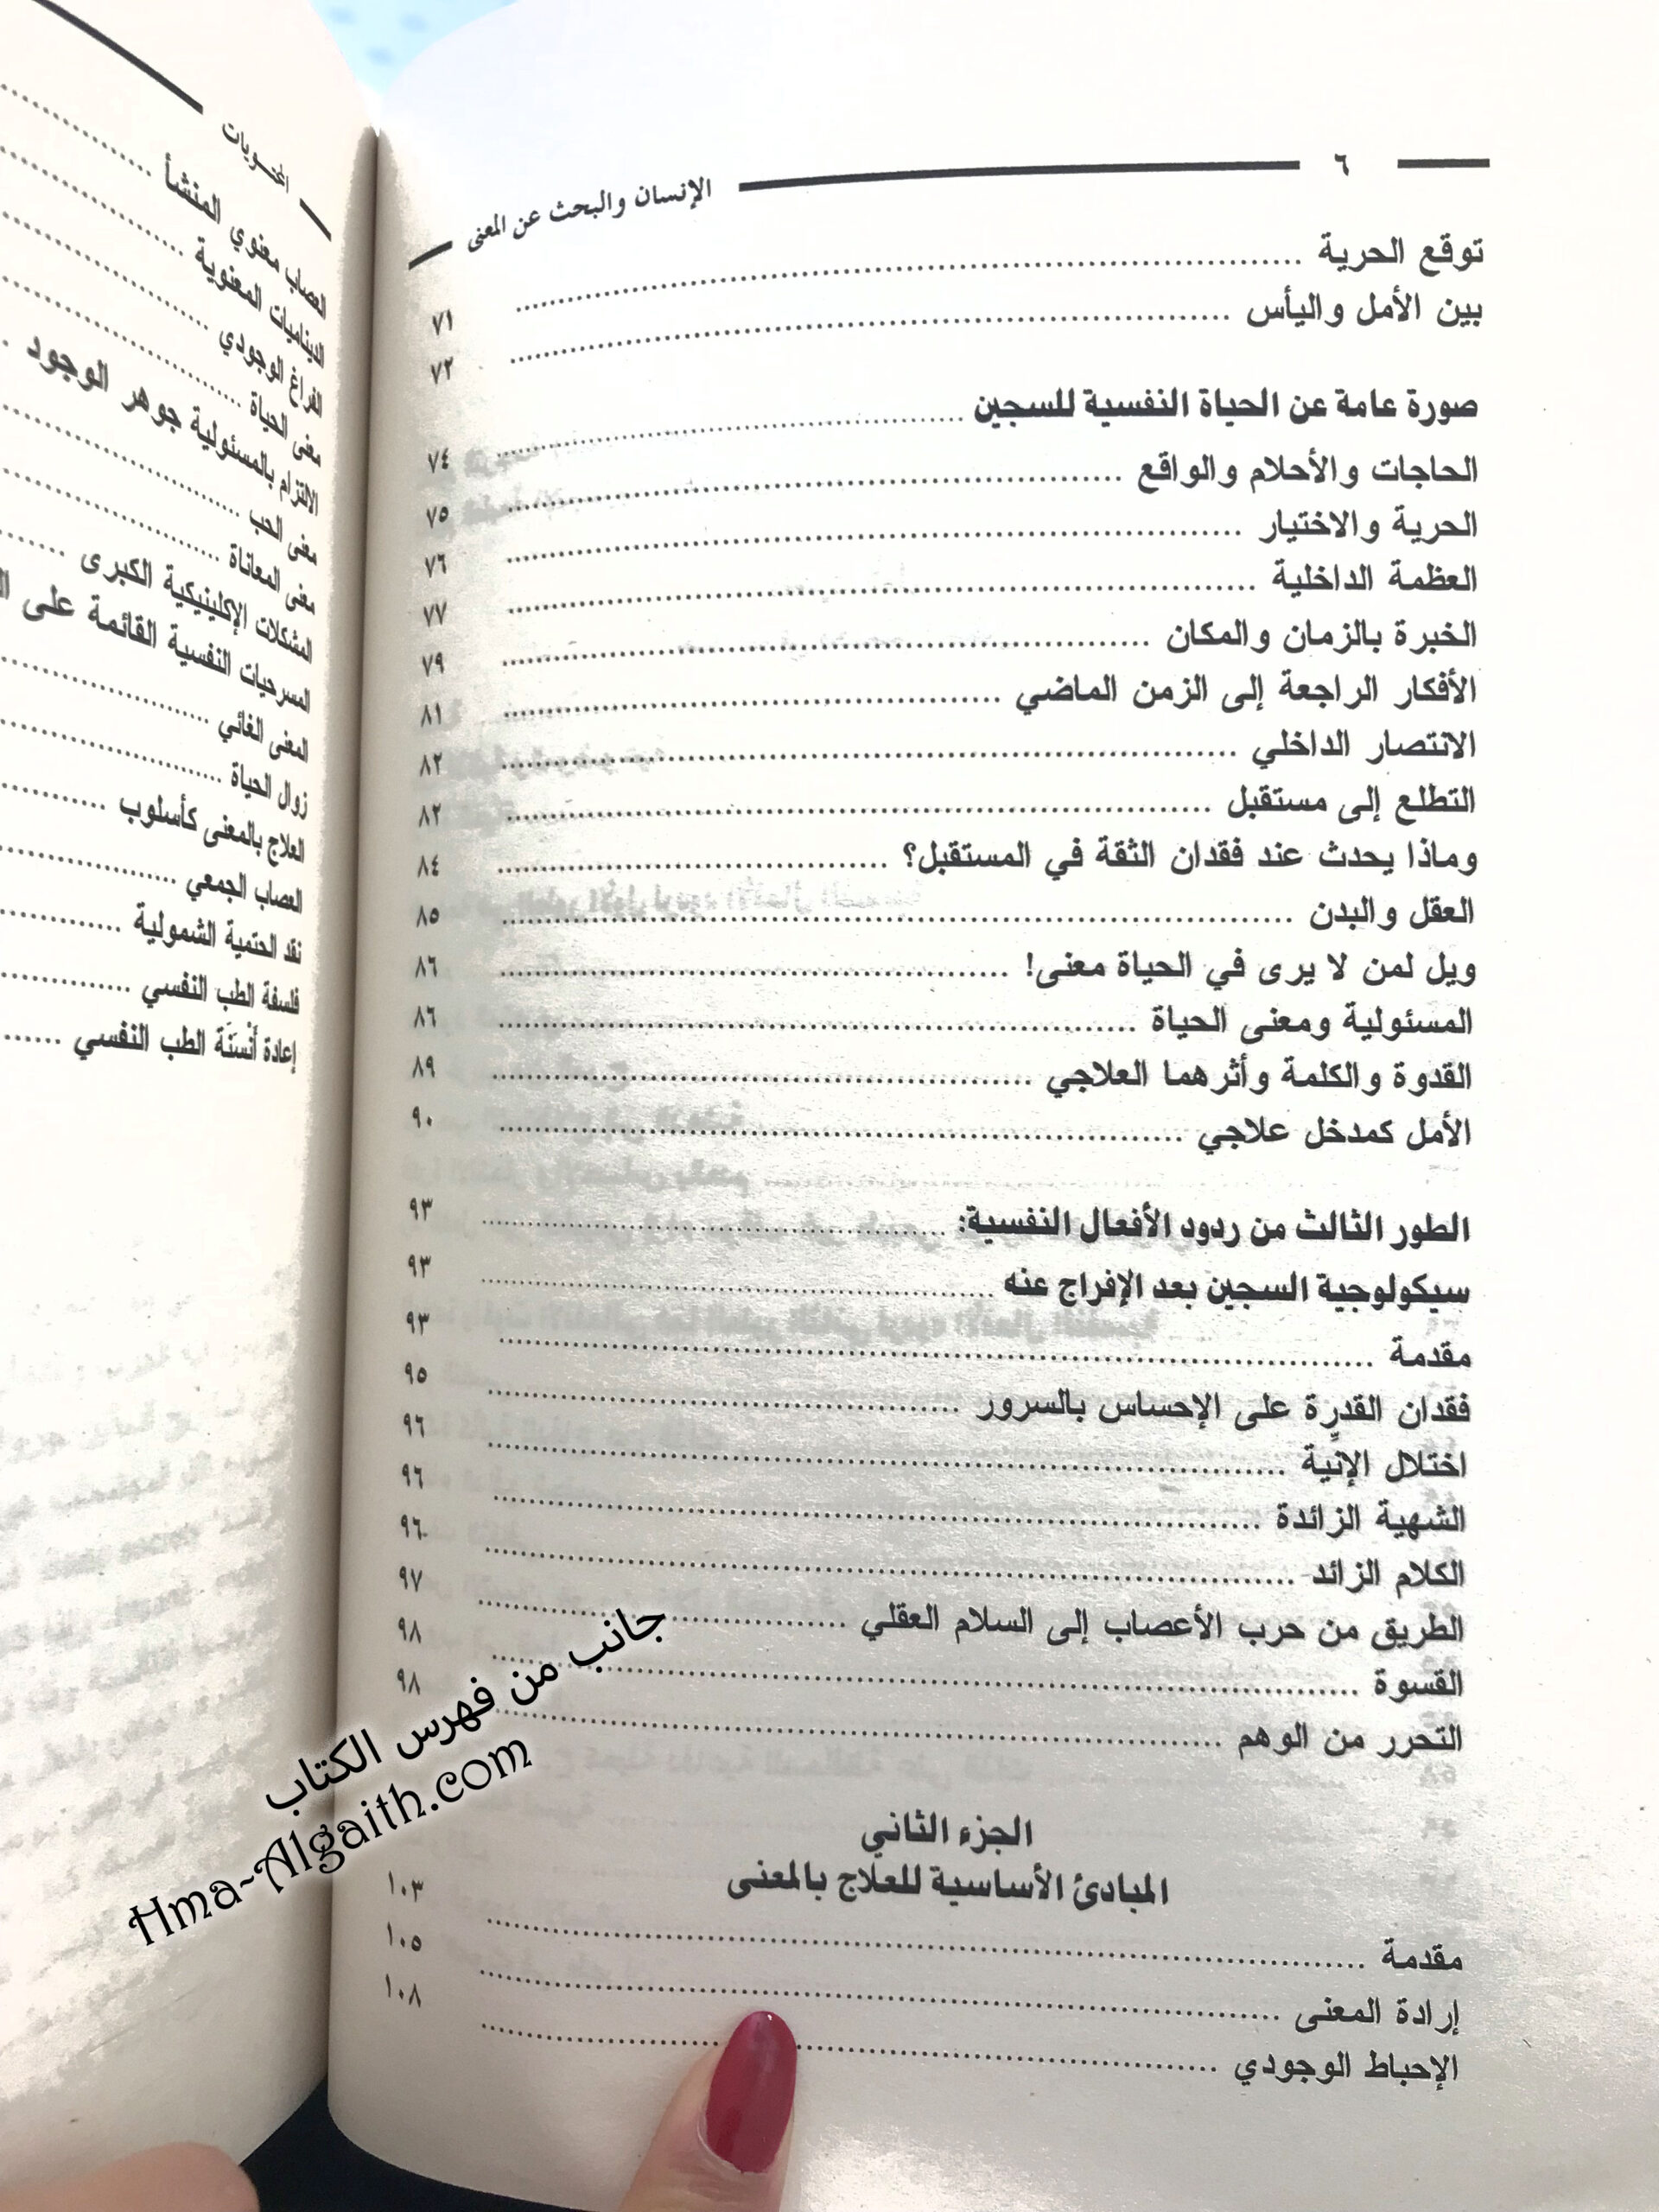 ٦
الإنسان والبحث عن المعنى
توقع الحرية ........ ٧١
بين الأمل واليأس ........ ٧٢
صورة عامة عن الحياة النفسية للسجين ........ ٧٤
الحاجات والأحلام والواقع ........ ٧٥
الحرية والاختيار ........ ٧٦
العظمة الداخلية ........ ٧٧
الخبرة بالزمان والمكان ........ ٧٩
الأفكار الراجعة إلى الزمن الماضي ........ ٨١
الانتصار الداخلي ........ ٨٢
التطلع إلى مستقبل ........ ٨٢
وماذا يحدث عند فقدان الثقة في المستقبل؟ ........ ٨٤
العقل والبدن ........ ٨٥
ويل لمن لا يرى في الحياة معنى! ........ ٨٦
المسئولية ومعنى الحياة ........ ٨٦
القدوة والكلمة وأثرهما العلاجي ........ ٨٩
الأمل كمدخل علاجي ........ ٩٠
الطور الثالث من ردود الأفعال النفسية: ........ ٩٣
سيكولوجية السجين بعد الإفراج عنه ........ ٩٣
مقدمة ........ ٩٣
فقدان القدرة على الإحساس بالسرور ........ ٩٥
اختلال الإنِّية ........ ٩٦
الشهية الزائدة ........ ٩٦
الكلام الزائد ........ ٩٦
الطريق من حرب الأعصاب إلى السلام العقلي ........ ٩٧
القسوة ........ ٩٨
التحرر من الوهم ........ ٩٨
الجزء الثاني
المبادئ الأساسية للعلاج بالمعنى
مقدمة ........ ١٠٣
إرادة المعنى ........ ١٠٥
الإحباط الوجودي ........ ١٠٨
المحتويات
العصاب معنوي المنشأ ........
الديناميات المعنوية ........
الفراغ الوجودي ........
معنى الحياة ........
الالتزام بالمسئولية جوهر الوجود ........
معنى الحب ........
معنى المعاناة ........
المشكلات الإكلينيكية الكبرى ........
المسرحيات النفسية القائمة على
المعنى الغائي ........
زوال الحياة ........
العلاج بالمعنى كأسلوب ........
العصاب الجمعي ........
نقد الحتمية الشمولية ........
فلسفة الطب النفسي ........
إعادة أَنْسَنَة الطب النفسي ........
جانب من فهرس الكتاب
Hma-Algaith.com